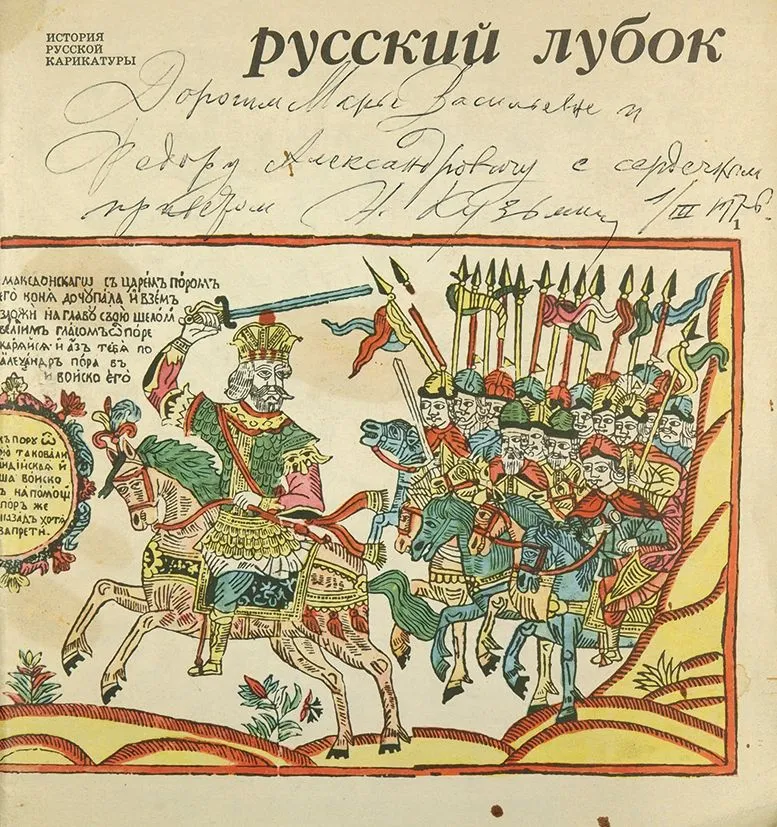 ИСТОРИЯ
РУССКОЙ
КАРИКАТУРЫ
русский лубок
Дорогим Марье Васильевне и
Федору Александровичу с сердечным
приветом Н. Кузьмин 1/III 1976.
1
МАКЕДОНСКАГѠ СЪ ЦАРЕМЪ ПОРОМЪ
ЕГО КОНЯ ДОЧУПАЛА И ВЗЕМЪ
НА ГЛАВУ СВОЮ ШЕЛОМ
ВЕЛИИМЪ ГЛАСОМЪ Ѿ ПОРЕ
И АЗЪ ТЕБЯ ПО
ПОРА ВЪ
И ВОИСКО ЕГО
ПОРУ Ѿ
ТАКОВАЛИ
ИНДІЙСКАЯ И
ША ВОИСКО
Ъ НА ПОМОЩ
ПОР ЖЕ
НАЗАДЪ ХОТѦ
ЗАПРЕТИ.